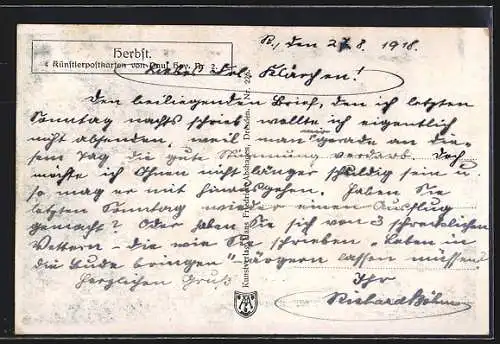 Herbst.
6 Künstlerpostkarten von Paul Hey. Nr. 2.
R., den 27.8. 1918.
Liebes Frl. Klärchen!
Den beiliegenden Brief, den ich letzten
Sonntag nachts schrieb wollte ich eigentlich
nicht absenden, weil man mir gerade an die-
sem Tag die gute Stimmung verdarb. Doch
möchte ich Ihnen nicht länger schuldig sein u.
so mag er mit hinausgehen. Haben Sie
letzten Sonntag wieder einen Ausflug
gemacht? Oder haben Sie sich von 3 schrecklichen
Vettern - die wie Sie schrieben „Leben in
die Bude bringen" - ärgern lassen müssen?
Herzlichen Gruß
Ihr
Richard Böhm
Kunstverlag Hans Friedrich Abshagen, Dresden. Nr. 22